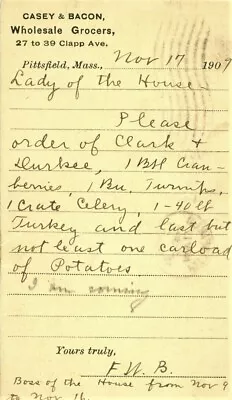 CASEY & BACON,
Wholesale Grocers,
27 to 39 Clapp Ave.
Pittsfield, Mass., Nov 17 1909
Lady of the House
Please
order of Clark &
Durkee, 1 Bbl Cran-
berries, 1 Bu. Turnips,
1 Crate Celery, 1-40 lb
Turkey and last but
not least one carload
of Potatoes
I am coming
Yours truly,
F. W. B.
Boss of the House from Nov 9
to Nov 16.